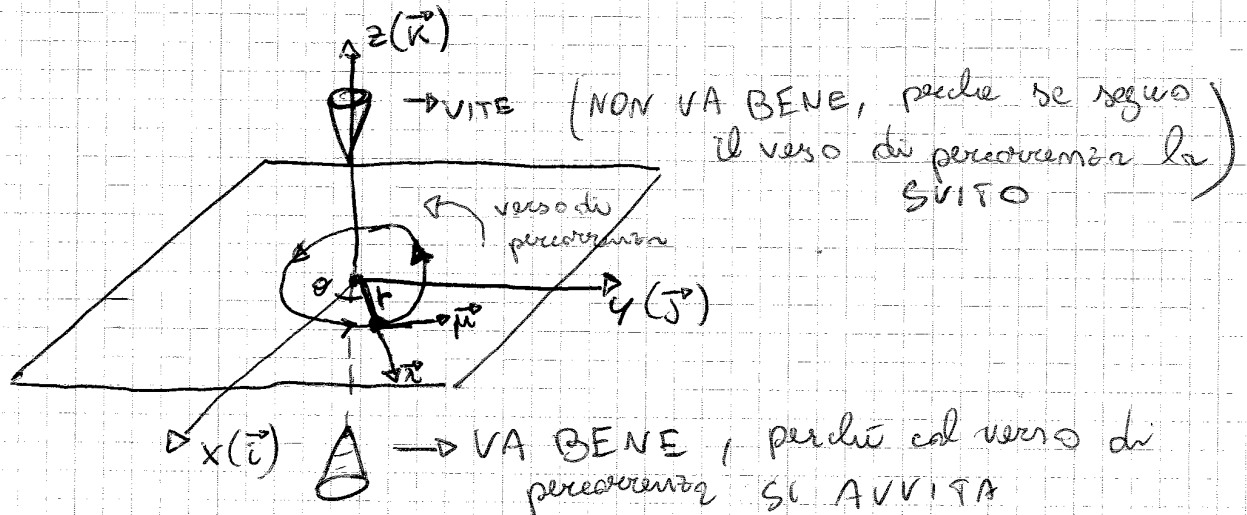 z(k⃗)
→ VITE (NON VA BENE, perche se seguo
il verso di percorrenza la)
SVITO
verso di
percorrenza
θ
r
y(j⃗)
μ⃗
λ⃗
x(i⃗)
→ VA BENE, perché col verso di
percorrenza SI AVVITA